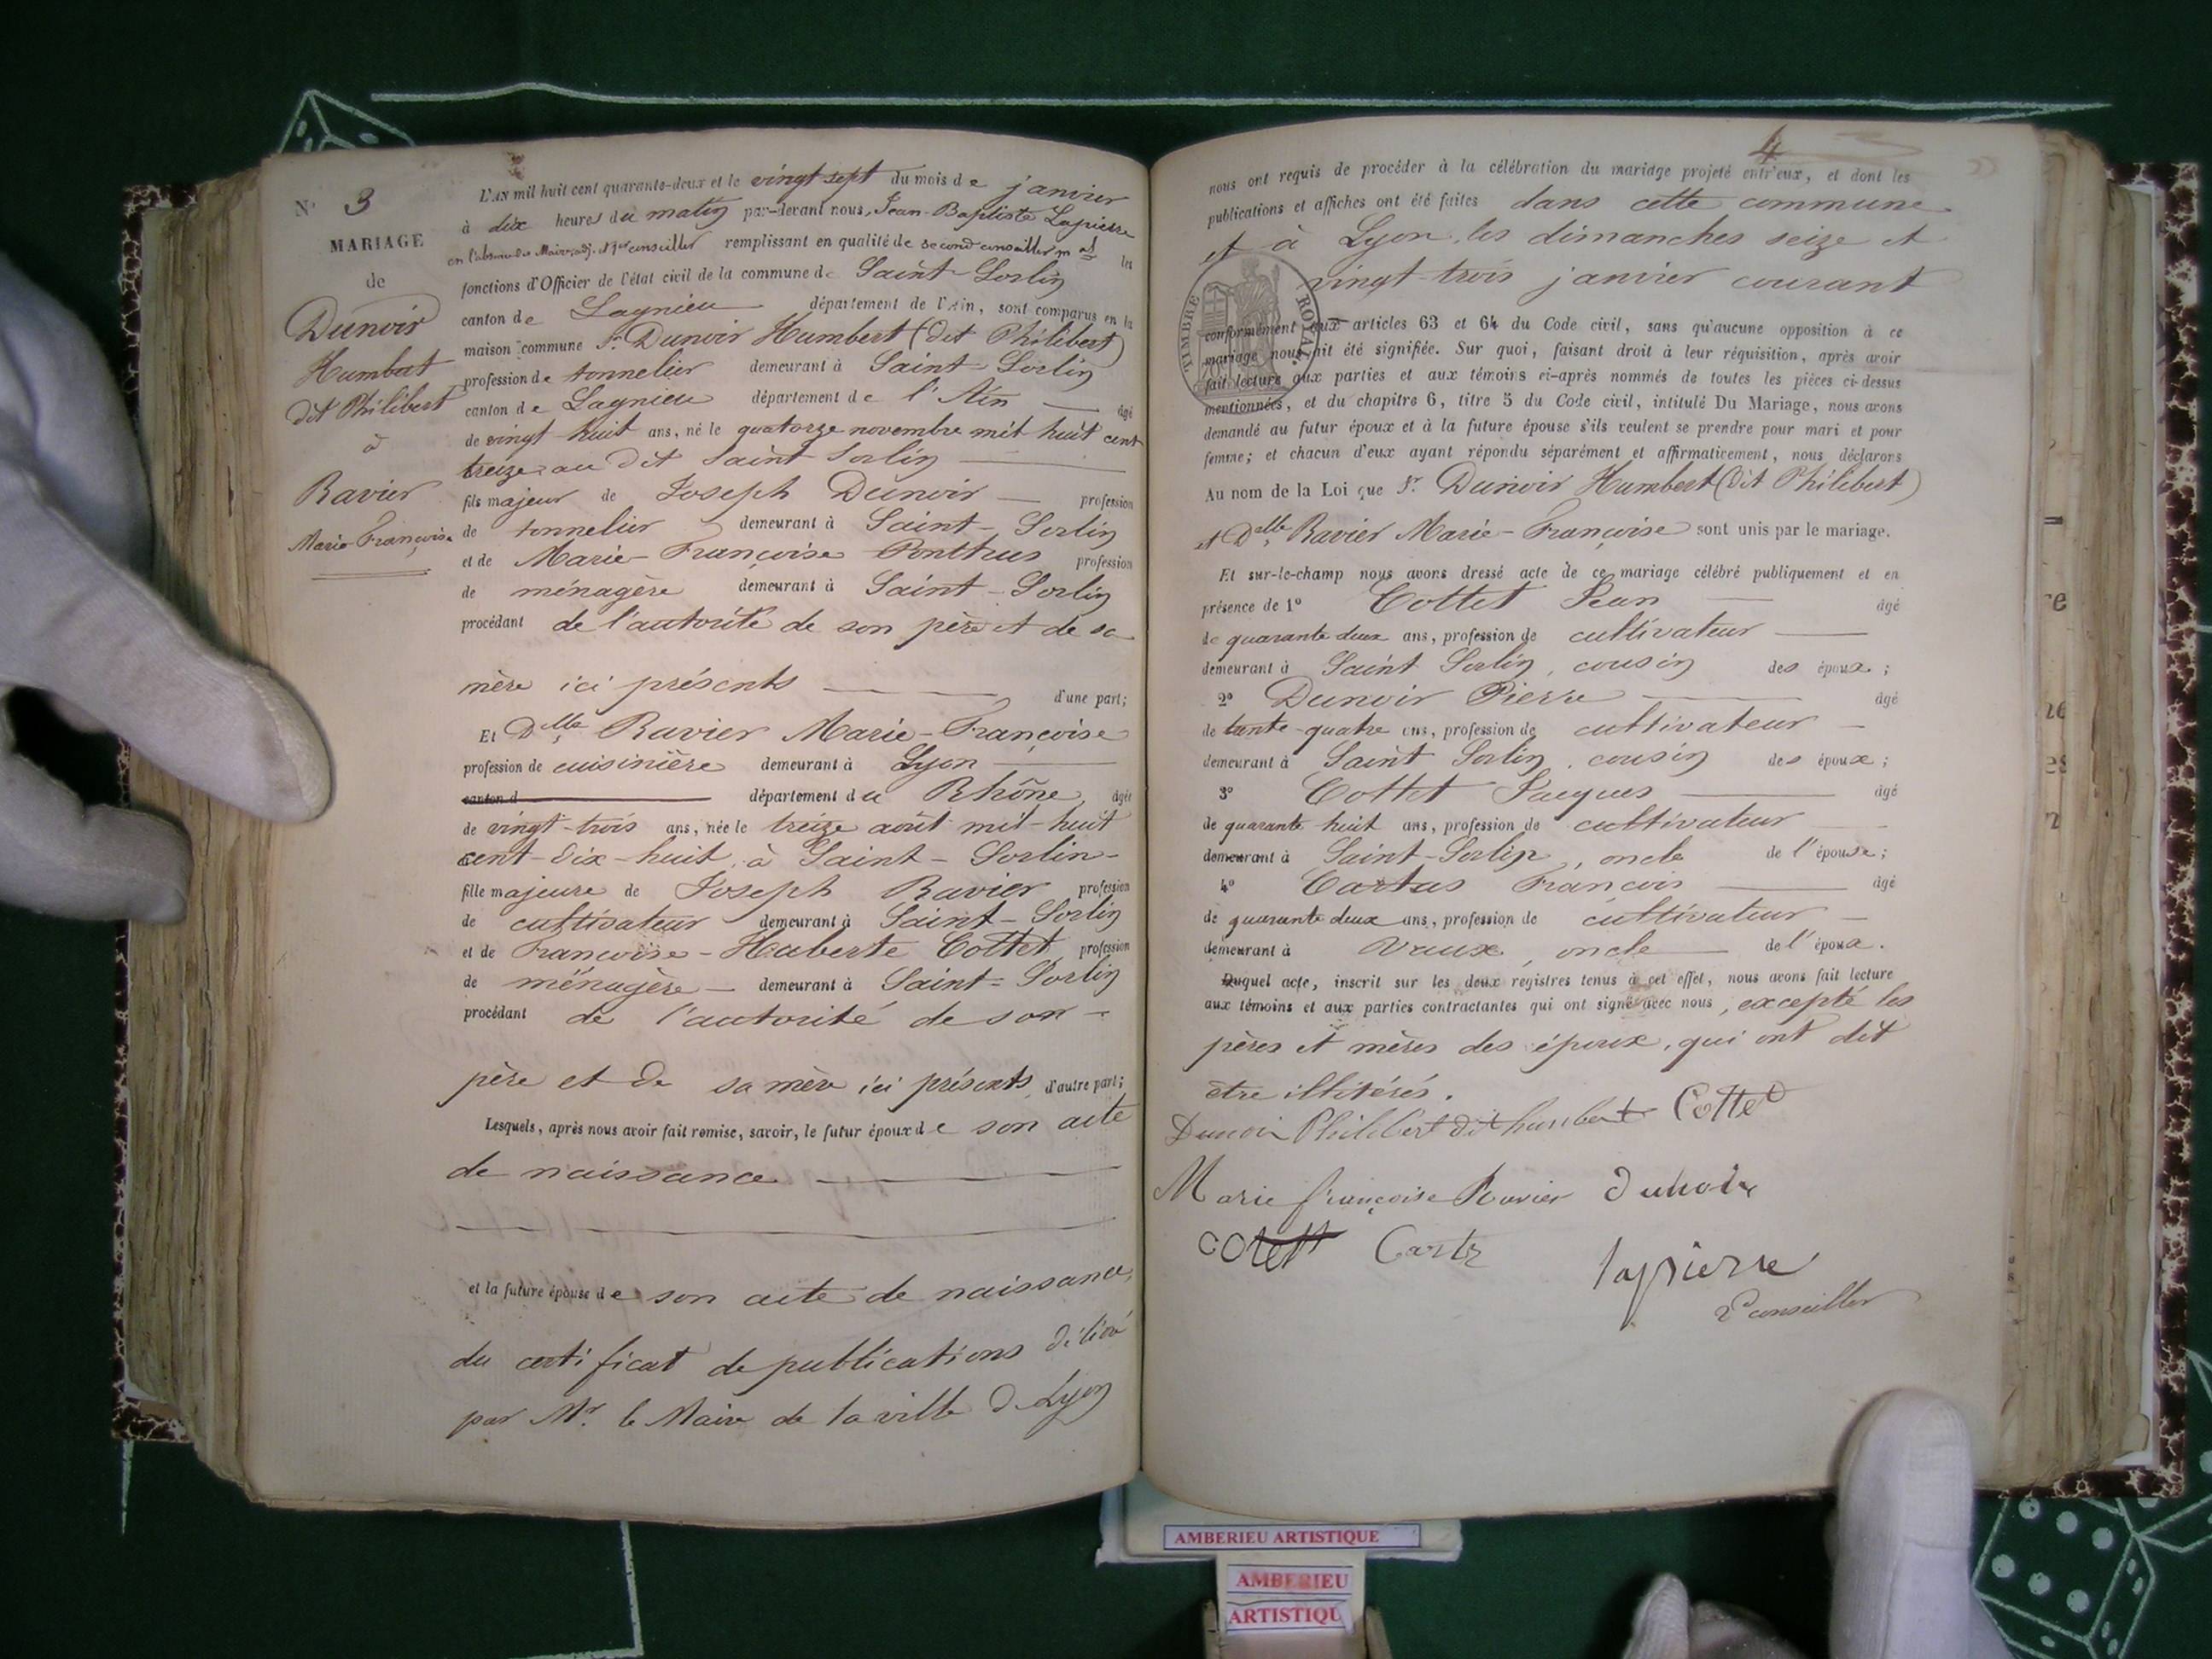 N° 3
MARIAGE
de
Dunoir
Humbert
dit Philibert
à
Ravier
Marie-Françoise
L'AN mil huit cent quarante-deux et le vingt sept du mois de janvier
à dix heures du matin par-devant nous, Jean-Baptiste Lapierre
en l'absence des Maire, adj. et 1er conseiller remplissant en qualité de second conseiller mal les
fonctions d'Officier de l'état civil de la commune de Saint-Sorlin
canton de Lagnieu département de l'Ain, sont comparus en la
maison commune Sr Dunoir Humbert (dit Philibert)
profession de tonnelier demeurant à Saint-Sorlin
canton de Lagnieu département de l'Ain âgé
de vingt-huit ans, né le quatorze novembre mil huit cent
treize au dit Saint Sorlin
fils majeur de Joseph Dunoir profession
de tonnelier demeurant à Saint-Sorlin
et de Marie-Françoise Ponthus profession
de ménagère demeurant à Saint-Sorlin
procédant de l'autorité de son père et de sa
mère ici présents d'une part;
Et Dlle Ravier Marie-Françoise
profession de cuisinière demeurant à Lyon
canton d département du Rhône, âgée
de vingt-trois ans, née le treize août mil-huit
cent-dix-huit, à Saint-Sorlin-
fille majeure de Joseph Ravier profession
de cultivateur demeurant à Saint-Sorlin
et de Françoise-Huberte Cottet, profession
de ménagère demeurant à Saint-Sorlin
procédant de l'autorité de son
père et de sa mère ici présents, d'autre part;
Lesquels, après nous avoir fait remise, savoir, le futur époux de son acte
de naissance
et la future épouse de son acte de naissance,
du certificat de publications délivré
par Mr. le Maire de la ville de Lyon
4
nous ont requis de procéder à la célébration du mariage projeté entr'eux, et dont les
publications et affiches ont été faites dans cette commune
et à Lyon, les dimanches seize et
vingt-trois janvier courant
TIMBRE ROYAL
conformément aux articles 63 et 64 du Code civil, sans qu'aucune opposition à ce
mariage nous ait été signifiée. Sur quoi, faisant droit à leur réquisition, après avoir
fait lecture aux parties et aux témoins ci-après nommés de toutes les pièces ci-dessus
mentionnées, et du chapitre 6, titre 5 du Code civil, intitulé Du Mariage, nous avons
demandé au futur époux et à la future épouse s'ils veulent se prendre pour mari et pour
femme; et chacun d'eux ayant répondu séparément et affirmativement, nous déclarons
Au nom de la Loi que Sr Dunoir Humbert (dit Philibert)
et Dlle Ravier Marie-Françoise sont unis par le mariage.
Et sur-le-champ nous avons dressé acte de ce mariage célébré publiquement et en
présence de 1° Cottet Jean âgé
de quarante deux ans, profession de cultivateur
demeurant à Saint Sorlin, cousin des époux;
2° Dunoir Pierre âgé
de trente-quatre ans, profession de cultivateur
demeurant à Saint Sorlin, cousin des époux;
3° Cottet Jacques âgé
de quarante huit ans, profession de cultivateur
demeurant à Saint-Sorlin, oncle de l'épouse;
4° Cartas François âgé
de quarante deux ans, profession de cultivateur
demeurant à Vaux, oncle de l'époux.
Duquel acte, inscrit sur les deux registres tenus à cet effet, nous avons fait lecture
aux témoins et aux parties contractantes qui ont signé avec nous, excepté les
pères et mères des époux, qui ont dit
être illitérés.
Dunoir Philibert dit humbert Cottet
Marie françoise Ravier dunoir
Lapierre
2d conseiller
AMBERIEU ARTISTIQUE
AMBERIEU
ARTISTIQU